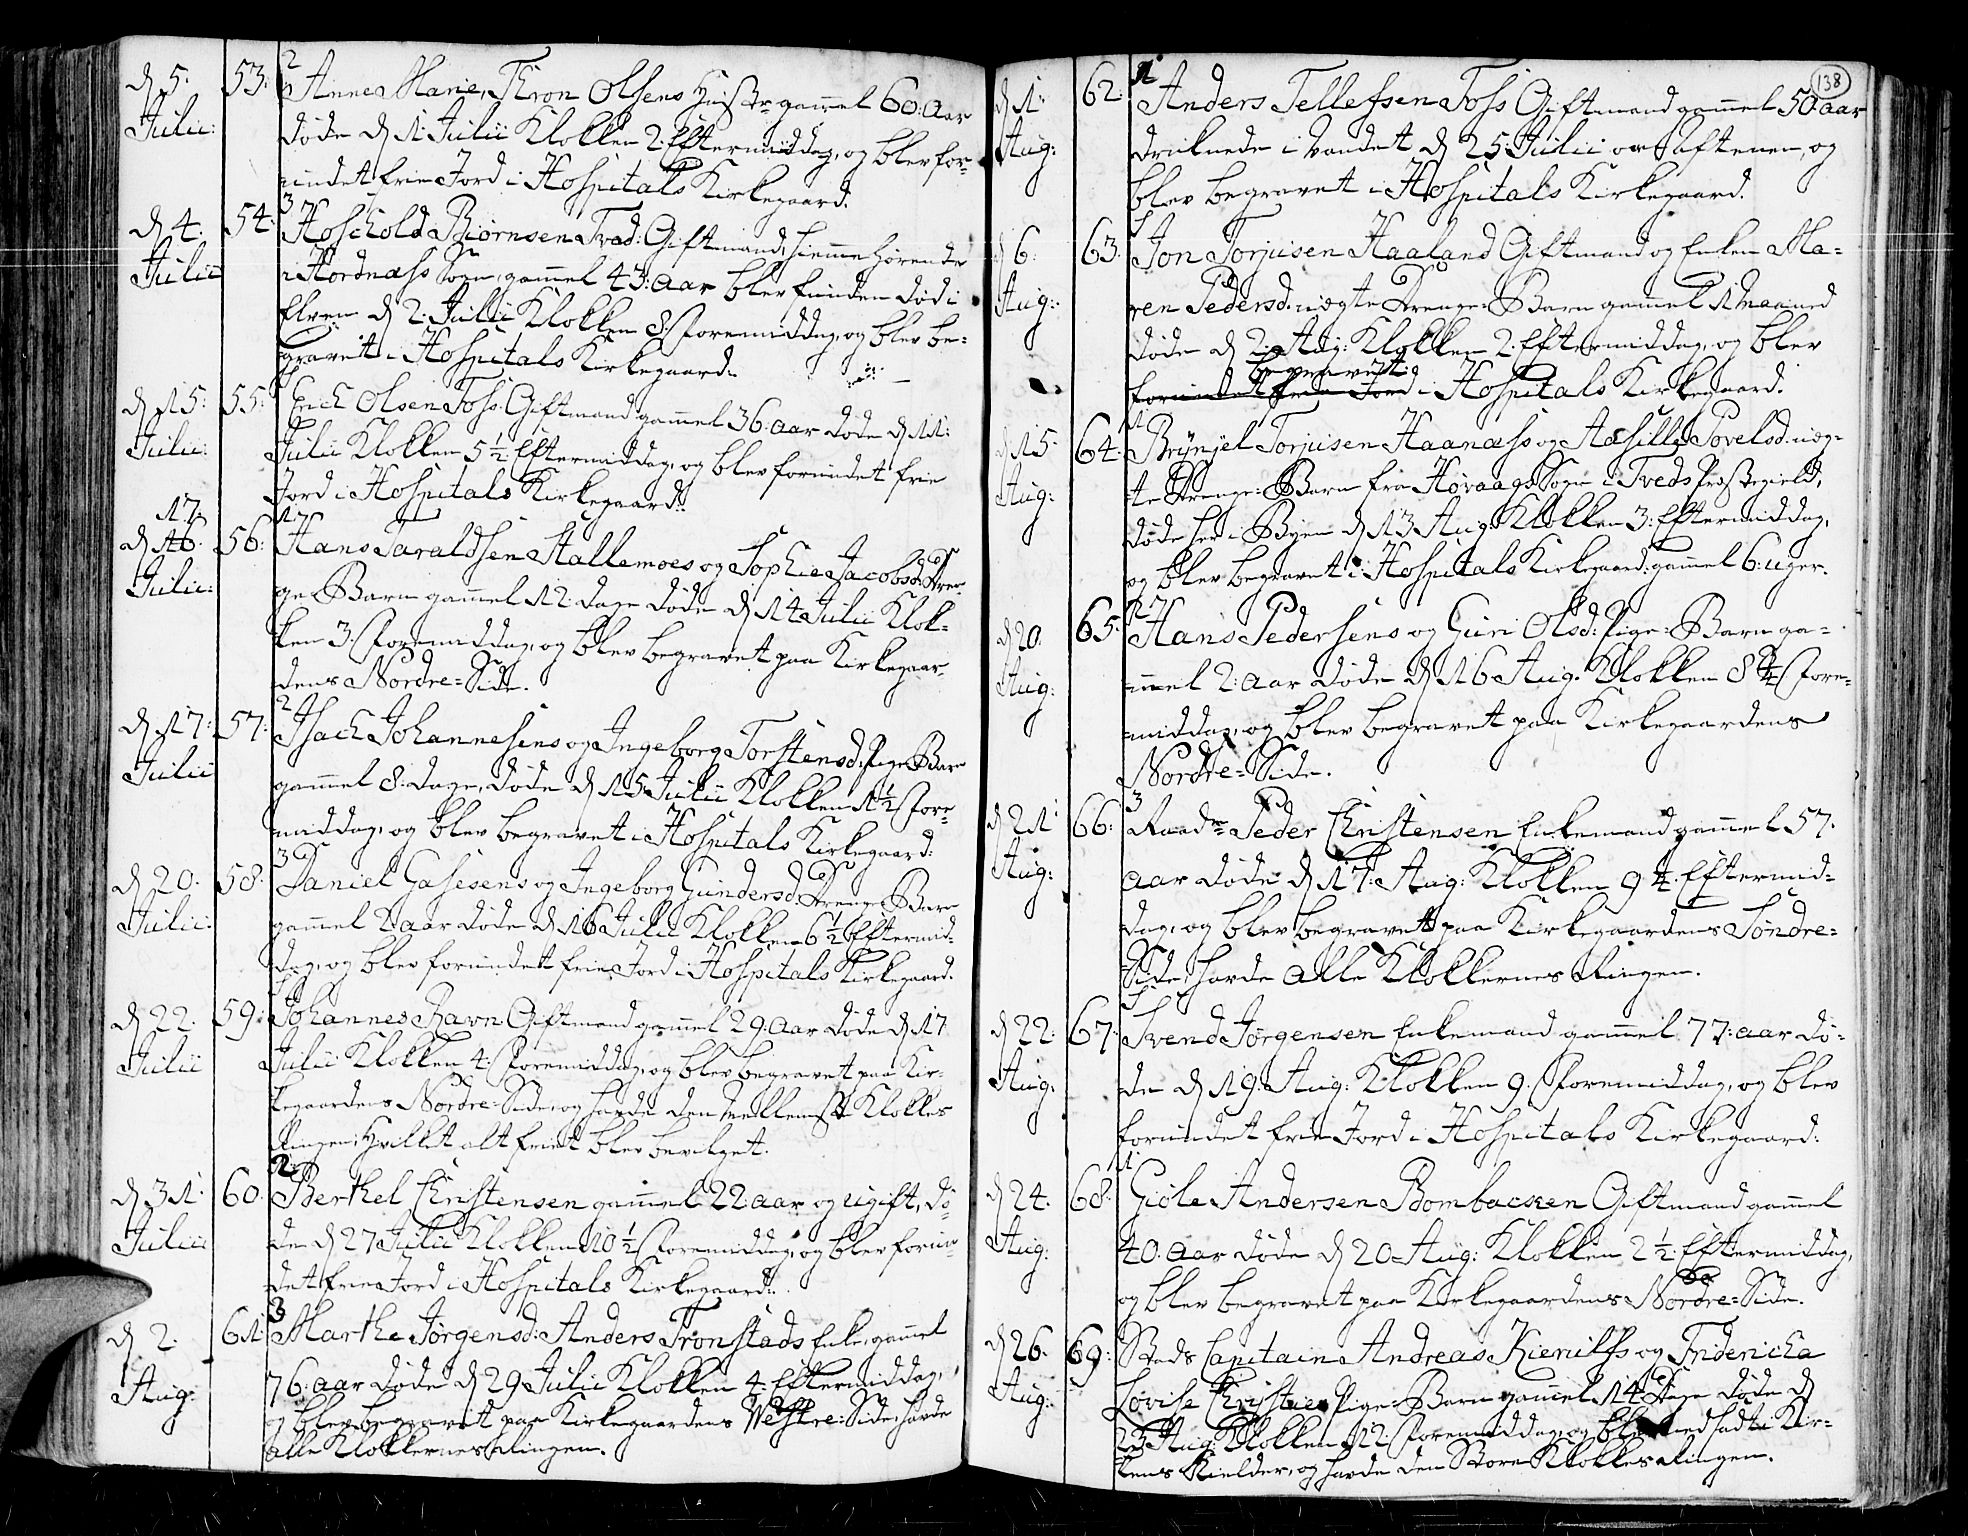 d 5. Julii: 53: 2 Anne Marie, Thron Olsens Hustr gamel 60: Aar
døde d 1 Julii Klokken 2: Eftermiddag, og blev for-
undet frie Jord i Hospitals Kirkegaard.
d 4. Julii 54: 3 Bjørnsen Tved: Giftmand, hiemmehørende
i Hordnæss Sogn, gamel 43: aar blev funden død i
Elven d 2: Julii Klokken 8: Formiddag, og blev be-
gravet i Hospitals Kirkegaard.
d 15: Julii: 55: Erich Olsen Foss: Giftmand gamel 36: aar døde d 11:
Julii Klokken 5 1/2 Eftermiddag, og blev forundet frie
Jord i Hospitals Kirkegaard:
17. d 16. Julii: 56: 1 Hans Taraldsen Stallemoes og Sophie Jacobsd: Dren-
ge-Barn gamel 12: dage døde d 14 Julii Klok-
ken 3: Formiddag, og blev begravet paa Kirkegaar-
dens Nordre=Side.
d 17: Julii 57: 2 Isach Johannesens og Ingeborg Torstensd: Pige-Barn
gammel 8: dage, døde d 15 Julii Klokken 1 1/2 Fore-
middag, og blev begravet i Hospitals Kirkegaard:
d 20. Julii: 58: 3 Daniel Gasesens og Ingeborg Gundersd: Drenge-Barn
gamel 2 aar døde d 16 Julii Klokken 6 1/2 Eftermid-
dag, og blev forundet frie Jord i Hospitals Kirkegaard.
d 22. Julii 59: Johannes Ravn Giftmand gamel 29: aar døde d 17
Julii Klokken 4: Formiddag, og blev begravet paa Kir-
kegaardens Nordre-Side, og havde den mellemste Klokkes
Ringen: Hvilket alt frit blev bevilget.
d 31. Julii 60: 2 Berthel Christensen gamel 22: aar og ugift, dø-
de d 27 Julii Klokken 10 1/2 Formiddag, og blev forun-
det frie Jord i Hospitals Kirkegaard.
d 2. Aug: 61: 3 Marthe Jørgensd: Anders Tronstads Enke, gamel
76: aar døde d 29 Julii Klokken 4: Eftermiddag,
og blev begravet paa Kirkegaardens Westre: Side, havde
alle Klokkernes Ringen.
138
d 1: Aug: 62: 1 Anders Tellefsen Foss Giftmand gamel 50: aar
druknede i Vandet d 25: Julii om Aftenen, og
blev begravet i Hospitals Kirkegaard.
d 6. Aug: 63: Jon Torjusen Haaland Giftmand og Enken Ma-
ren Pedersd: uægte Drenge=Barn gamel 1 Maaned
døde d 2: Aug: Klokken 2: Eftermiddag, og blev
begravet
forundet frie Jord i Hospitals Kirkegaard.
d 15 Aug: 64: 1 Brynjel Torjusen Haanæss og Aasille Povelsd: uæg-
te Drenge=Barn fra Høvaags Sogn i Tveds Præstegield,
døde her i Byen d 13 Aug: Klokken 3: Eftermiddag,
og blev begravet i Hospitals Kirkegaard: gammel 6: uger.
d 20. Aug: 65: 2 Hans Pedersens og Guri Olsd: Pige=Barn ga-
mmel 2: aar døde d 16 Aug. Klokken 8 1/4 Fore-
middag, og blev begravet paa Kirkegaardens
Nordre=Side.
d 21 Aug: 66: 3 Peder Christensen Enkemand gamel 57.
aar døde d 17: Aug: Klokken 9 1/4. Eftermid-
dag, og blev begravet paa Kirkegaardens Søndre=
Side, havde alle Klokkernes Ringen.
d 22: Aug: 67: Svend Jørgensen Enkemand gamel 77: aar dø-
de d 19: Aug: Klokken 9: Formiddag, og blev
forundet frie Jord i Hospitals Kirkegaard:
d 24. Aug: 68: 1 Giøle Andersen Bombacken Giftmand gamel
40: aar døde d 20 Aug: Klokken 2 1/2 Eftermiddag,
og blev begravet paa Kirkegaardens Nordre=Side.
d 26. Aug: 69: Stads Capitain Andreas Kienilfs og Friedericha
Lovise Christies Pige=Barn gamel 14 Dage døde d
23 Aug: Klokken 12: Formiddag, og blev nedsadt i Kir-
kens Kielder, og havde den Store Klokkes Ringen.